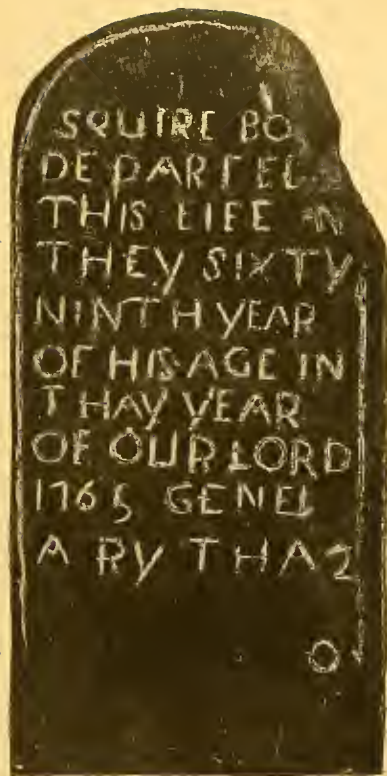 SQUIRE BO
DEPARTED
THIS LIFE IN
THEY SIXTY
NINTH YEAR
OF HIS AGE IN
THAY YEAR
OF OUR LORD
1765 GENEL
ARY THA 2
O